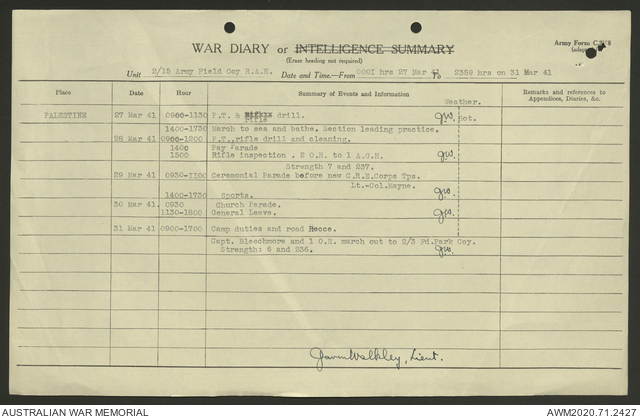 WAR DIARY or INTELLIGENCE SUMMARY
Army Form C.2118
(Erase heading not required)
Unit 2/15 Army Field Coy R.A.E. Date and Time.—From 0001 hrs 27 Mar 41 To 2359 hrs on 31 Mar 41
Place Date Hour Summary of Events and Information Remarks and references to Appendices, Diaries, &c.
Weather.
PALESTINE 27 Mar 41 0900-1130 P.T. & Rifle drill. gw. Hot.
1400-1730 March to sea and bathe. Section leading practice.
28 Mar 41 0900-1200 P.T., rifle drill and cleaning.
1400 Pay Parade
1500 Rifle inspection. 2 O.R. to 1 A.G.H. gw.
Strength 7 and 237.
29 Mar 41 0930-1100 Ceremonial Parade before new C.R.E. Corps Tps.
Lt.-Col.Mayne.
1400-1730 Sports. gw.
30 Mar 41 0930 Church Parade.
1130-1800 General Leave. gw.
31 Mar 41 0900-1700 Camp duties and road Recce.
Capt. Bleechmore and 1 O.R. march out to 2/3 Fd.Park Coy.
Strength: 6 and 236. gw.
Gavin Walkley, Lieut.
AUSTRALIAN WAR MEMORIAL AWM2020.71.2427